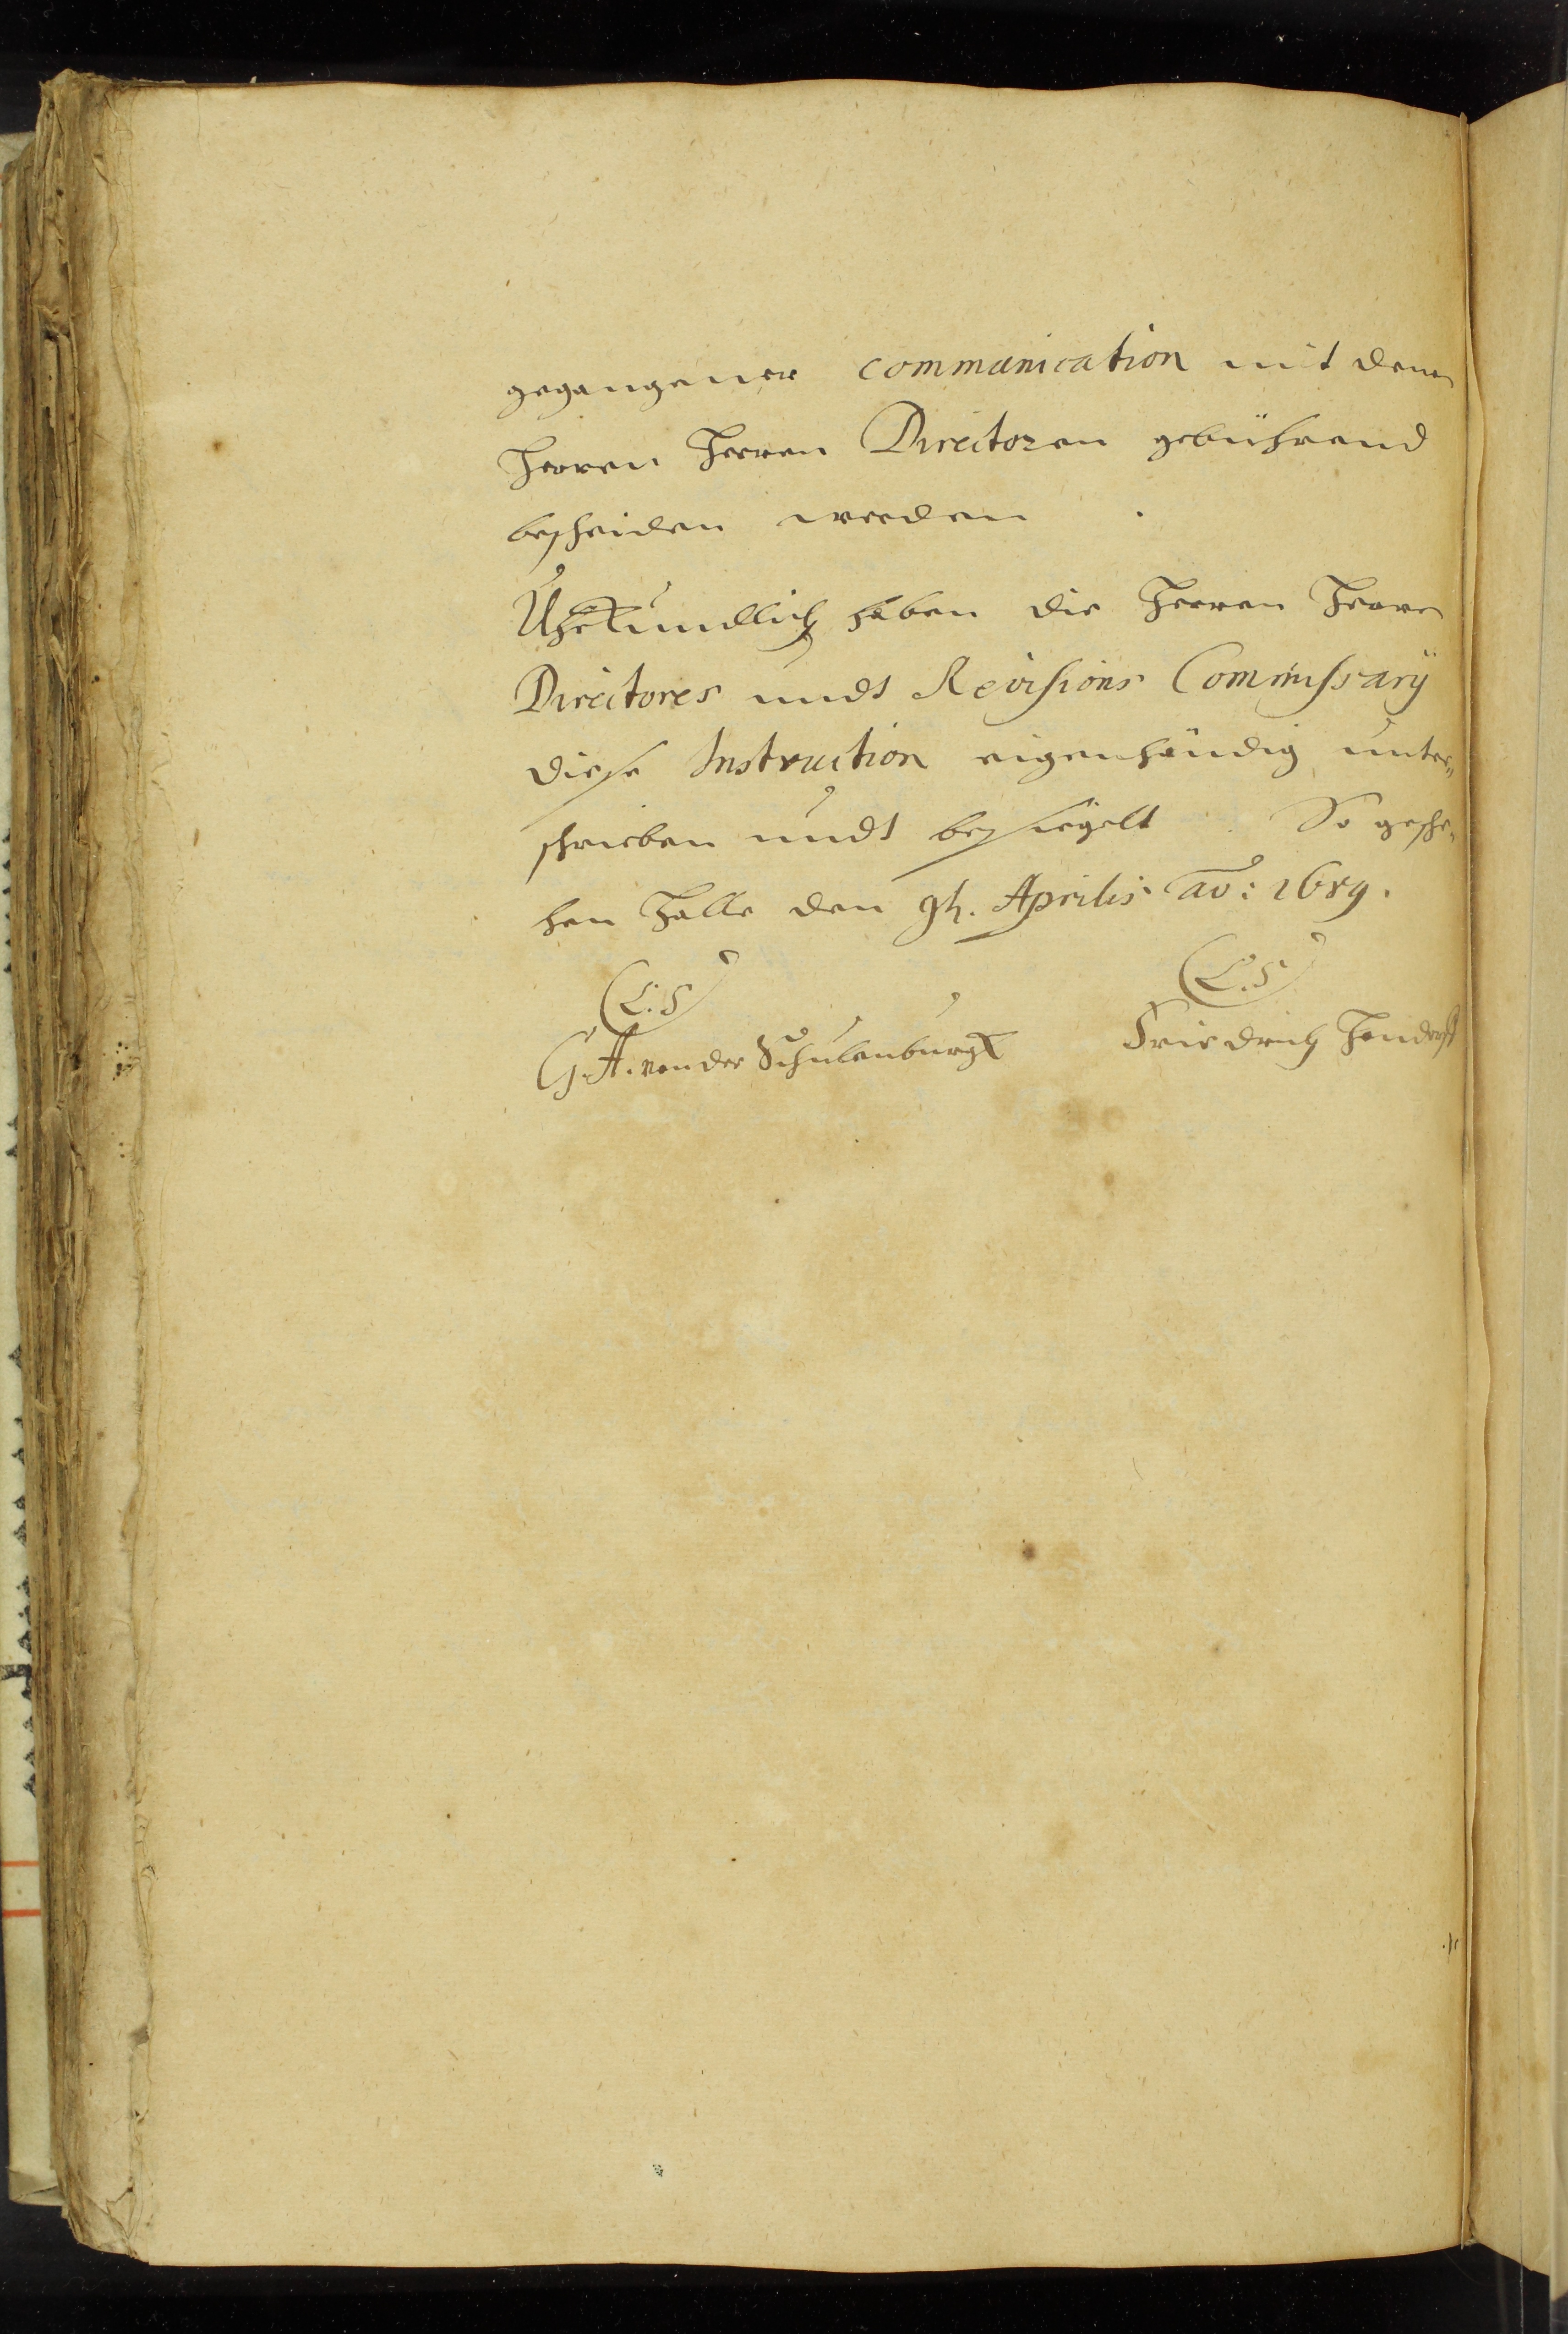 gegangener communication mit denen
Herren Herren Directoren gebührend
bescheiden werden .
Uhrkundlich haben die Herren Herren
Directores undt Revisions Commissarÿ
diese Instruction eigenhändig unter¬
schrieben undt besiegelt. So gesche¬
hen Halle den 9t. Aprilis ao: 1689.
(L.S)
(L.S)
G. A. von der Schulenburgk
Friedrich Hondorff